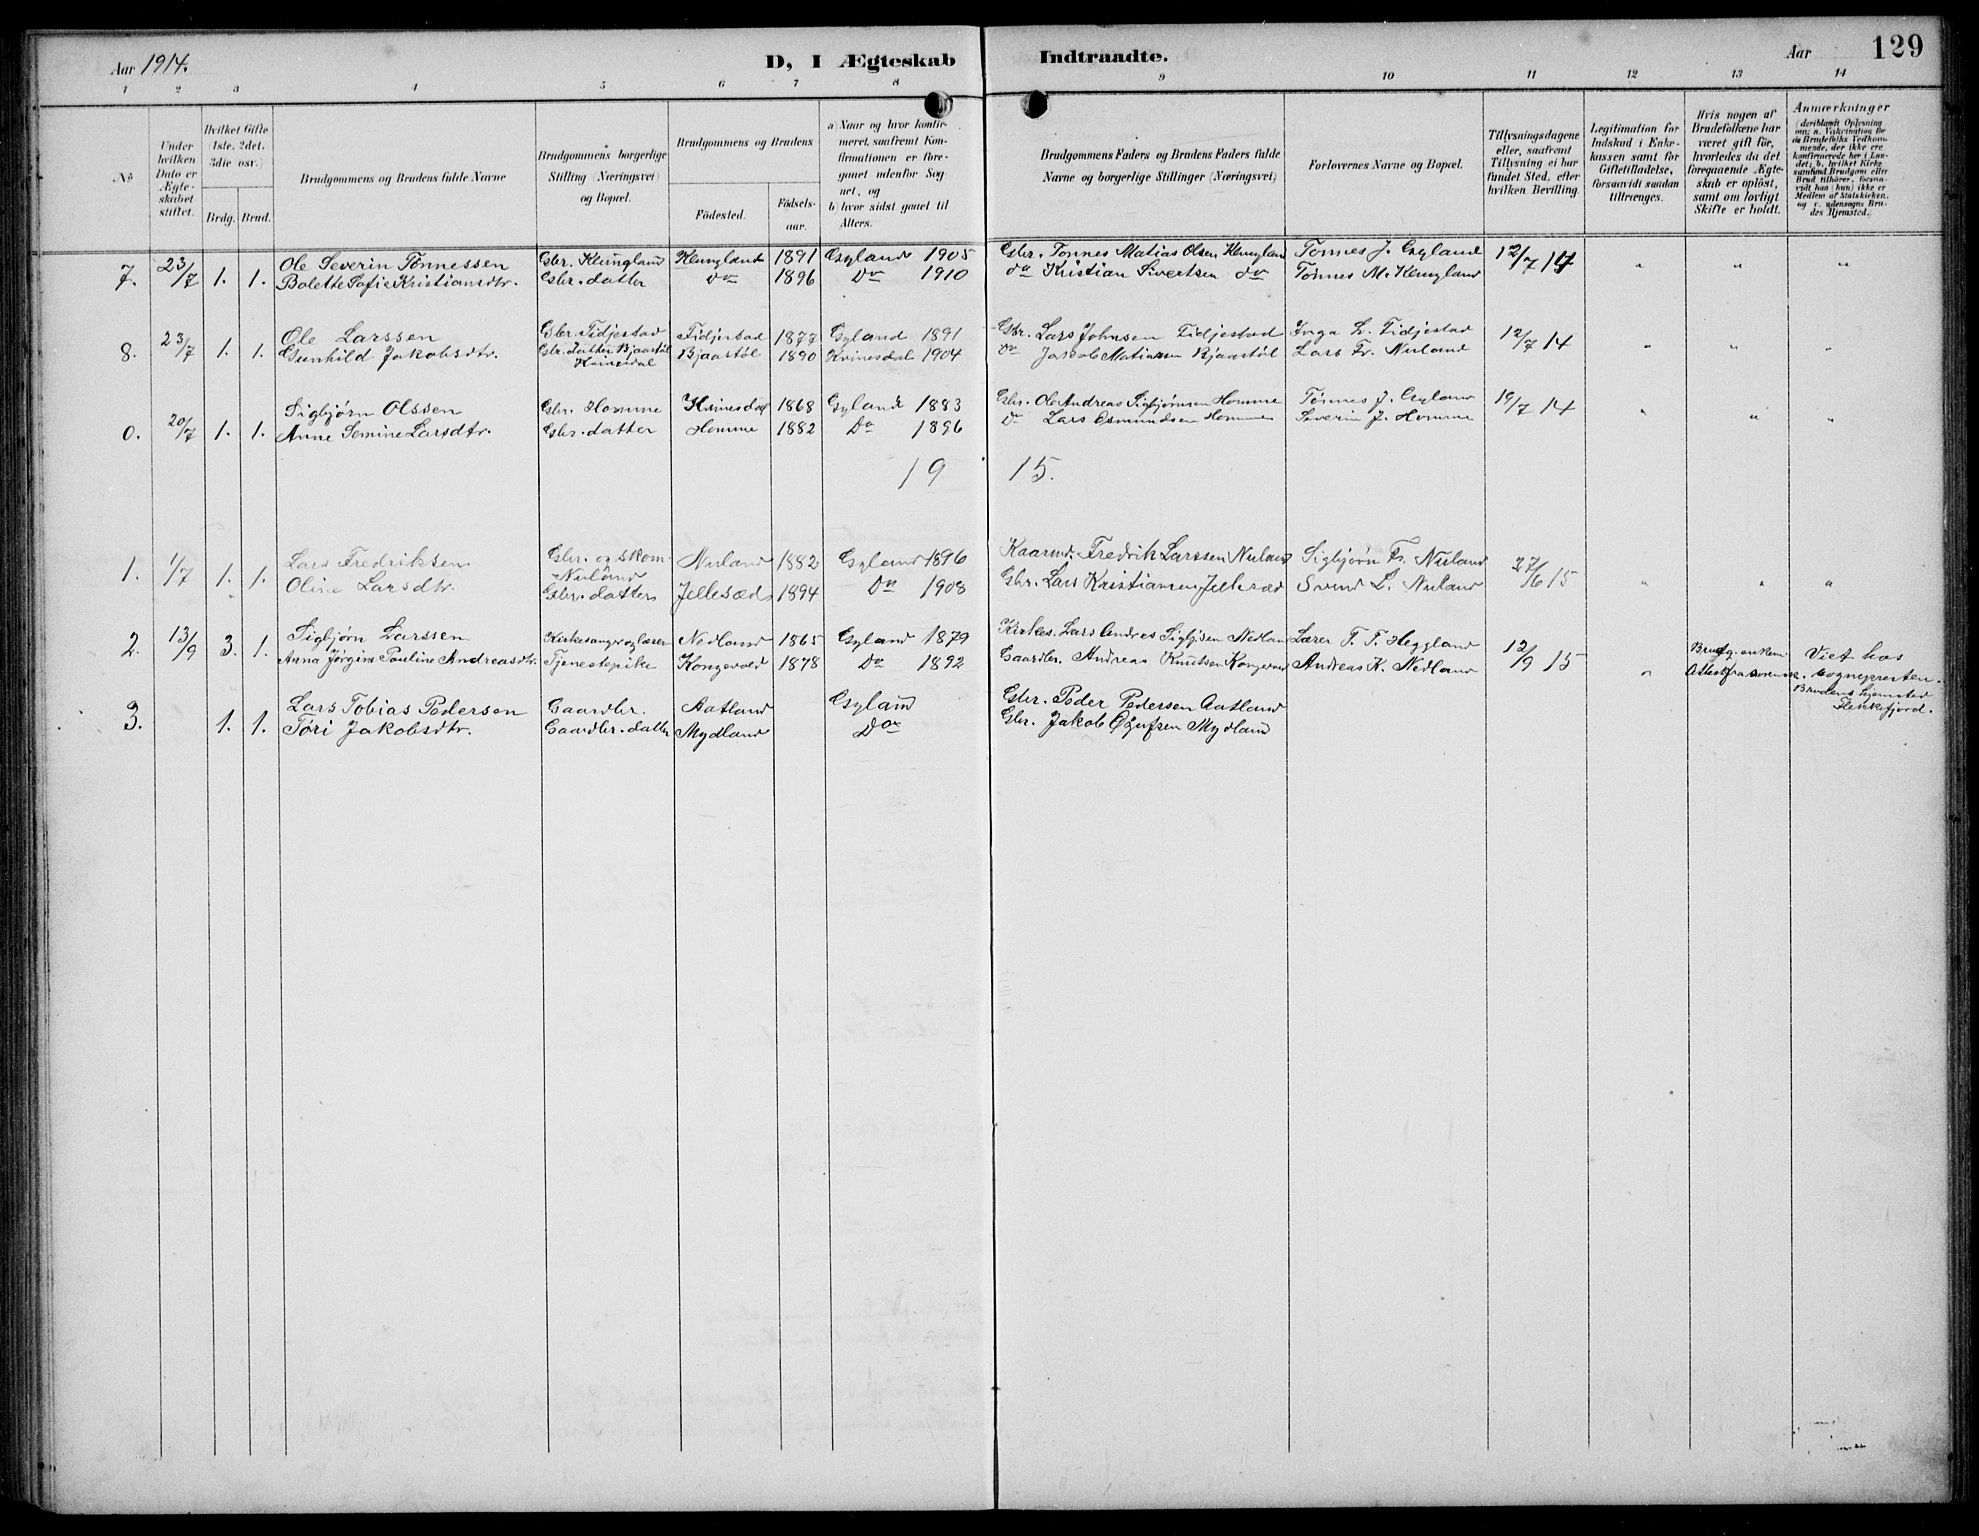 Aar 1914. D, I Ægteskab Indtraadte. Aar 129
1 2 3 4 5 6 7 8 9 10 11 12 13 14
No
Under hvilken Dato er Ægteskabet stiftet.
Hvilket Gifte (1ste, 2det, 3die osv.)
Brdg. Brud.
Brudgommens og Brudens fulde Navne
Brudgommens borgerlige Stilling (Næringsvei) og Bopæl.
Brudgommens og Brudens
Födested. Födselsaar.
a) Naar og hvor konfirmeret, saafremt Konfirmationen er foregaaet udenfor Sognet, og
b) hvor sidst gaaet til Alters.
Brudgommens Faders og Brudens Faders fulde Navne og borgerlige Stillinger (Næringsvei)
Forlovernes Navne og Bopæl.
Tillysningsdagene eller, saafremt Tillysning ei har fundet Sted, efter hvilken Bevilling.
Legitimation for Indskud i Enkekassen samt for Giftetilladelse, forsaavidt saadan tiltrænges.
Hvis nogen af Brudefolkene har været gift før, hvorledes da det foregaaende Ægteskab er oplöst, samt om lovligt Skifte er holdt.
Anmærkninger
(deriblandt Oplysning om: a. Vakcination for de Brudefolks Vedkommende, der ikke ere konfirmerede her i Landet; b. hvilket Kirkesamfund Brudgom eller Brud tilhörer, forsaavidt han (hun) ikke er Medlem af Statskirken, og c. udensogns Brudes Hjemsted.)
7. 23/7 1. 1. Ole Severin Tönnessen Gbr. Kemgland Kemgland 1891 Gyland 1905 Gbr. Tönnes Matias Olsen Kemgland Tönnes J. Gyland 12/7 14 " " "
Bolette Sofie Kristiansdtr. Gbr. datter Do 1896 Do 1910 do Kristian Sivertsen do Tönnes M. Kemgland
8. 23/7 1. 1. Ole Larssen Gbr. Fidjestad Fidjestad 1877 Gyland 1891 Gbr. Lars Johnsen Fidjestad Inga L. Fidjestad 12/7 14 " " "
Gunhild Jakobsdtr. Gbr. datter Bjaastöl Kvinesdal Bjaastöl 1890 Kvinesdal 1904 do Jakob Matiassen Bjaastöl Lars Fr. Nuland
0. 20/7 1. 1. Sigbjørn Olssen Gbr. Homme Kvinesdal 1868 Gyland 1883 Gbr. Ole Andreas Sigbjørnsen Homme Tönnes J. Gyland 19/7 14 " " "
Anne Semine Larsdtr. Gbr. datter Homme 1882 Do 1896 Do Lars Osmundsen Homme Severin J. Homme
19 15.
1. 1/7 1. 1. Lars Fredriksen Gbr. og skom. Nuland Nuland 1882 Gyland 1896 Kaarmd. Fredrik Larssen Nuland Sigbjørn Fr. Nuland 27/6 15 " " "
Oline Larsdtr. Gbr. datter Jellesæd 1894 Do 1908 Gbr. Lars Kristiansen Jellesæd Svend L. Nuland
2. 13/9 3. 1. Sigbjørn Larssen Kirkesanger og lærer Nedland 1865 Gyland 1879 Kirkes. Lars Andres Sigbj.sen Nedland Lærer T. T. Heggland 12/9 15 " Brudg. enkem. Viet hos
Anna Jørgine Pauline Andreasdtr. Tjenestepike Kongevold 1878 Do 1892 Gaardbr. Andreas Knutsen Kongevold Andreas K. Nedland Attest fra sorensk. sognepresten. Brudens hjemsted Flekkefjord.
3. 1. 1. Lars Tobias Pedersen Gaardbr. Aatland Gyland Gbr. Peder Pedersen Aatland
Töri Jakobsdtr. Gaardbr. datter Mydland Do Gbr. Jakob Olufsen Mydland